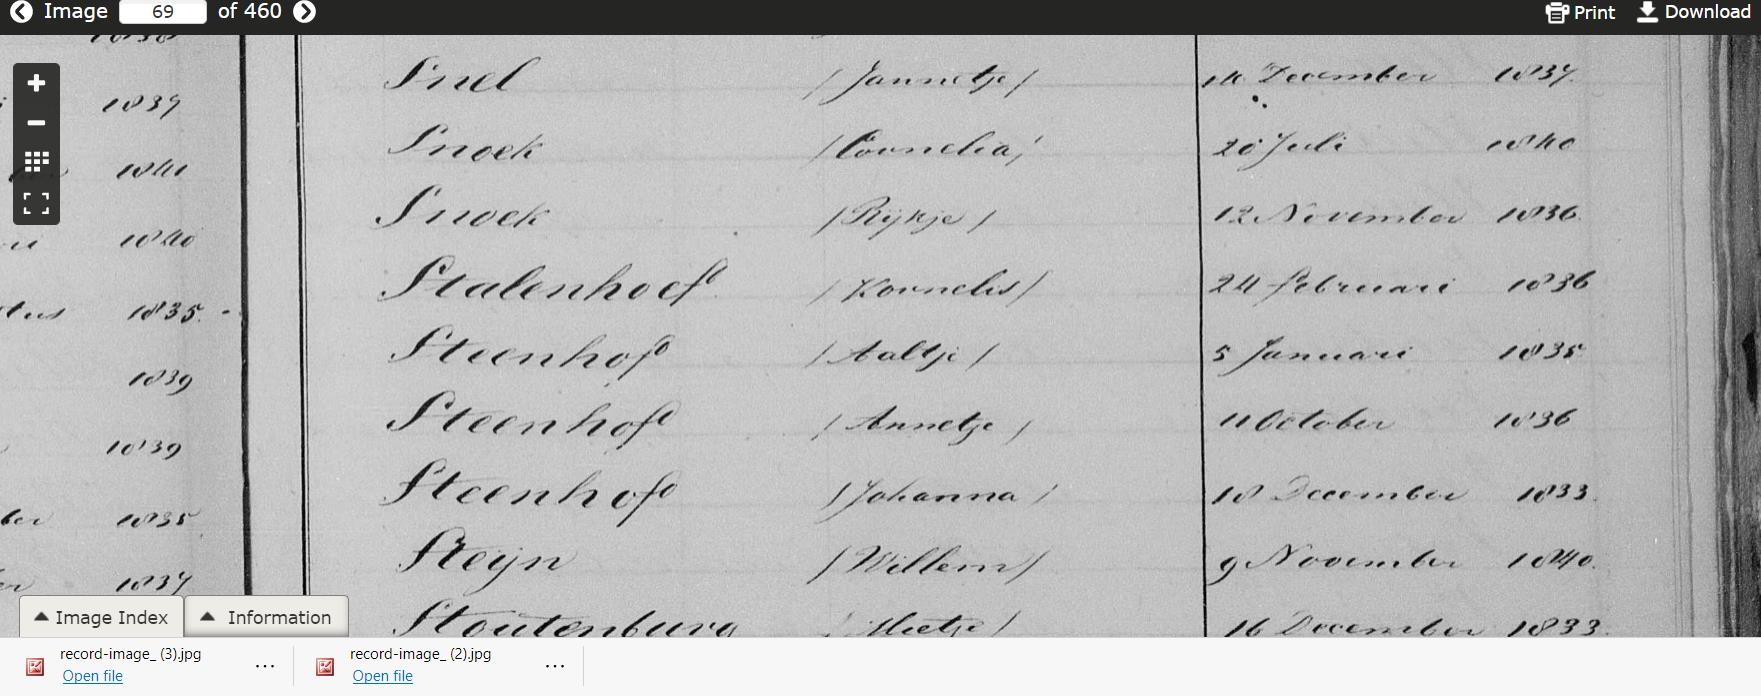 Image 69 of 460 Print Download
1839
1841
1840
1835.
1839
1839
ber 1835
1837
Snel (Jannetje) 14 December 1837.
Snoek (Cornelia) 20 Juli 1840
Snoek (Rijkje) 12 November 1836.
Stalenhoef (Kornelis) 24 februari 1836
Steenhof (Aaltje) 5 Januari 1835
Steenhof (Annetje) 11 October 1836
Steenhof (Johanna) 18 December 1833.
Steijn (Willem) 9 November 1840.
Stoutenburg 16 December 1833.
Image Index Information
record-image_ (3).jpg ... record-image_ (2).jpg ...
Open file Open file